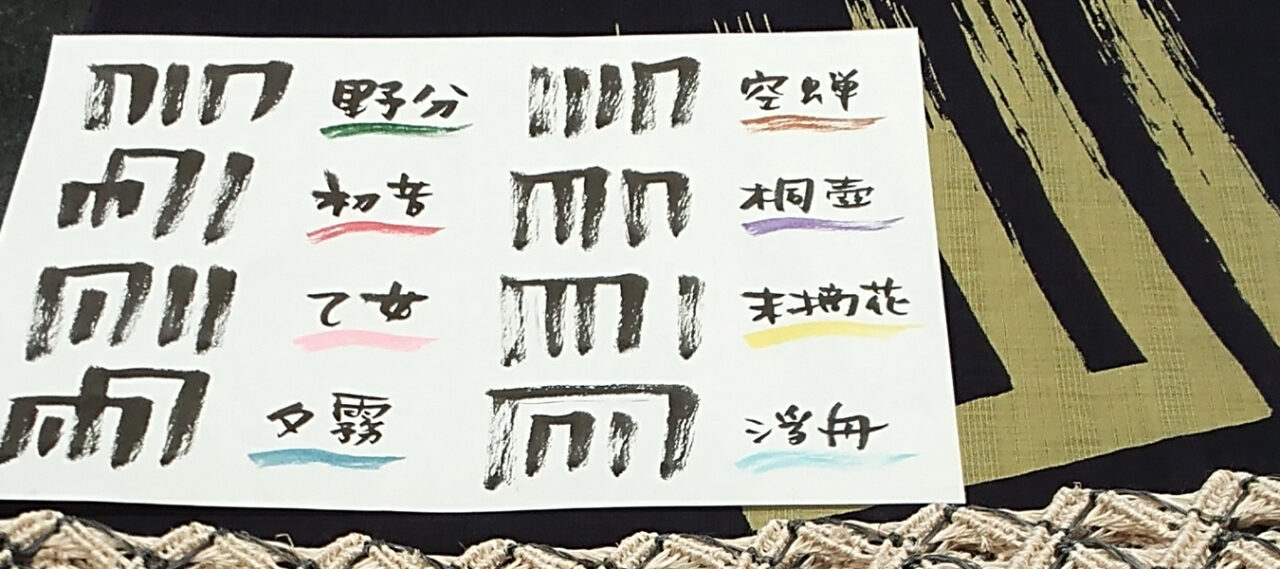 野分
初音
乙女
夕霧
空蝉
桐壺
末摘花
浮舟